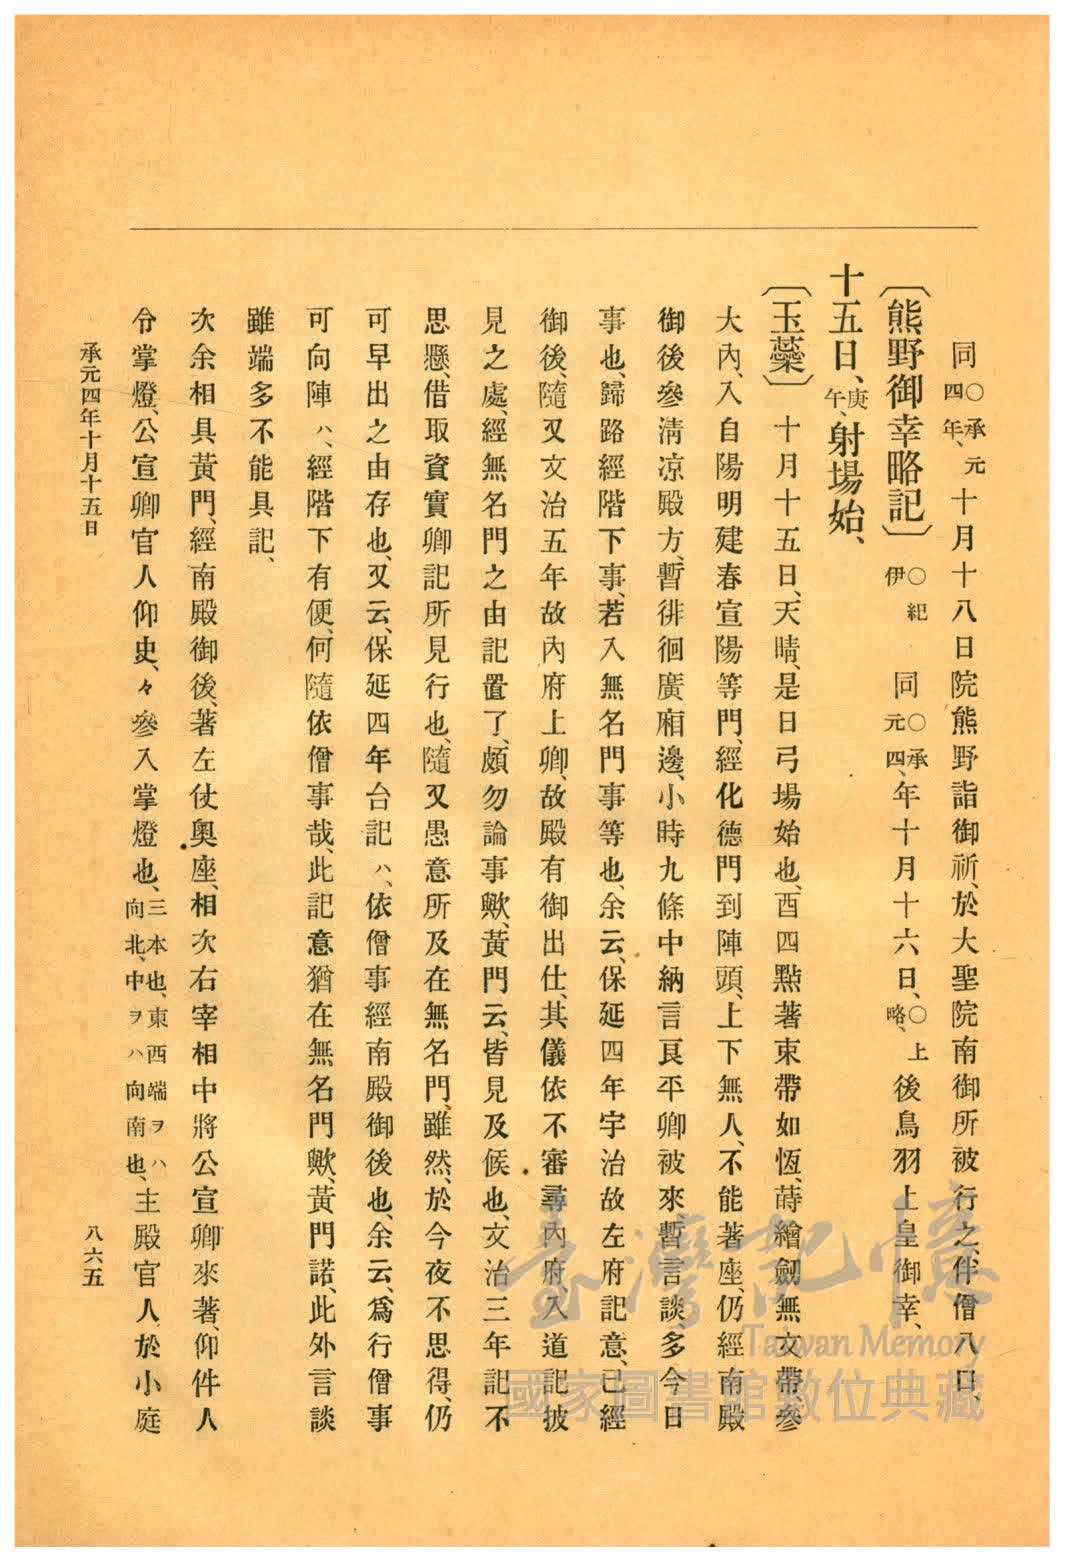 同〇承元四年、十月十八日院熊野詣御祈、於大聖院南御所被行之、伴僧八口、
〔熊野御幸略記〕〇紀伊 同〇承元四、年十月十六日、〇上略、後鳥羽上皇御幸、
十五日、庚午、射場始、
〔玉蘂〕十月十五日、天晴、是日弓場始也、酉四點著束帶如恆、蒔繪劒無文帶、參
大內、入自陽明建春宣陽等門、經化德門到陣頭、上下無人、不能著座、仍經南殿
御後參淸凉殿方、暫徘徊廣廂邊、小時九條中納言良平卿被來暫言談、多今日
事也、歸路經階下事、若入無名門事等也、余云、保延四年宇治故左府記意、已經
御後、隨又文治五年故內府上卿、故殿有御出仕、其儀依不審尋內府、入道記披
見之處、經無名門之由記置了、頗勿論事歟、黃門云、皆見及候也、文治三年記不
思懸、借取資實卿記所見行也、隨又愚意所及在無名門、雖然、於今夜不思得、仍
可早出之由存也、又云、保延四年台記ハ、依僧事經南殿御後也、余云、爲行僧事
可向陣ハ、經階下有便、何隨依僧事哉、此記意猶在無名門歟、黃門諾、此外言談
雖端多不能具記、
次余相具黃門、經南殿御後、著左仗奧座、相次右宰相中將公宣卿來著、仰件人
令掌燈、公宣卿官人仰史、々參入掌燈也、三本也、東西端ヲハ向北、中ヲハ向南也、主殿官人、於小庭
承元四年十月十五日
八六五
臺灣記憶
Taiwan Memory
國家圖書館數位典藏